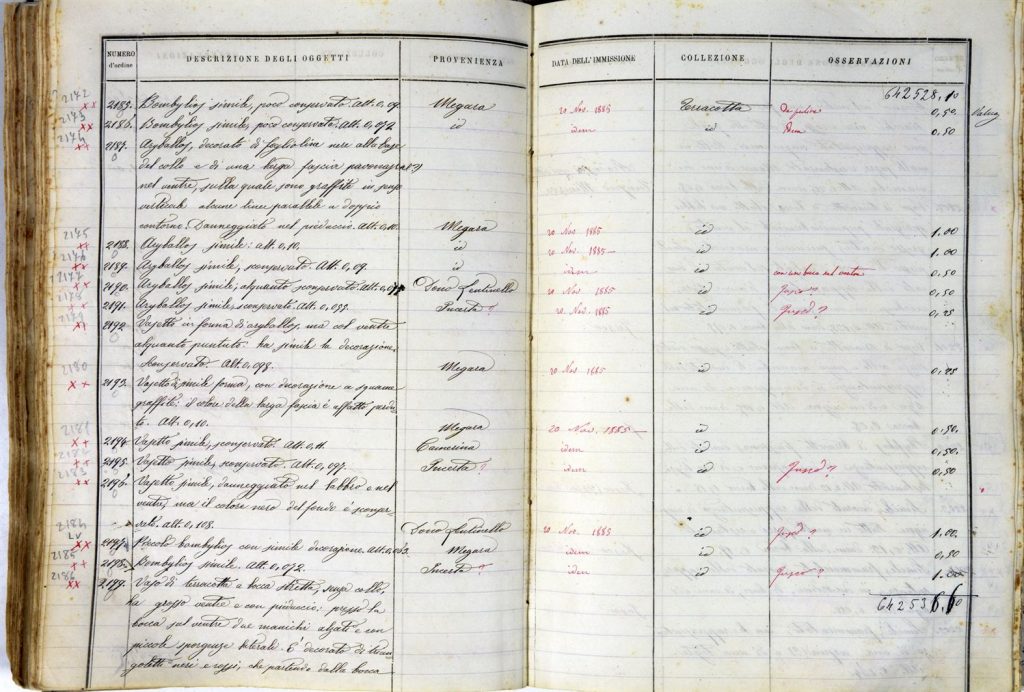 NUMERO d'ordine DESCRIZIONE DEGLI OGGETTI PROVENIENZA DATA DELL'IMMISSIONE COLLEZIONE OSSERVAZIONI
642528,10
2172 2185. Bombylios simile, poco conservato. Alt. 0,09. Megara 20 Nov. 1885 terracotta 0,50
2173 2186. Bombylios simile, poco conservato. Alt. 0,072. id idem id Idem 0,50
2174 2187. Aryballos, decorato di foglioline nere alla base
del collo e di una larga fascia pavonazza
nel ventre, sulla quale sono graffite in senso
verticale alcune linee parallele a doppio
contorno. Danneggiato nel Alt. 0,10. Megara 20 Nov. 1885 id 1.00
2175 2188. Aryballos simile: alt. 0,10. id 20 Nov. 1885 id 1.00
2176 2189. Aryballos simile, sconservato. Alt. 0,09. id idem id con un buco nel ventre 0,50
2177 2190. Aryballos simile, alquanto sconservato. Alt. Dono 20 Nov. 1885 id 0,50
2178 2191. Aryballos simile, sconservato. Alt. Incerta ? 20 Nov. 1885 id 0,25
2179 2192. Vasetto in forma d'aryballos, ma col ventre
alquanto puntuto: ha simile la decorazione.
Sconservato. Alt. 0,098. Megara 20 Nov. 1885 id
2180 2193. Vasetto di simile forma, con decorazione a squame
graffite: il colore della larga fascia è affatto perdu-
to. Alt. 0,10. Megara 20 Nov. 1885 id 0,50.
2181 2194. Vasetto simile, sconservato. Alt. 0,11. Camerina idem id 0,50.
2195. Vasetto simile, sconservato. Alt. Incerta ? idem id 0,50
2196. Vasetto simile, danneggiato nel labbro e nel
ventre, ma il colore nero del fondo è sconser-
vato. Alt. 0,108. Dono 20 Nov. 1885 id 1.00
2184 2197. Piccolo bombylios con simile decorazione. Alt. Megara idem id 0,50
2185 2198. Bombylios simile. Alt. 0,072. Incerta ? idem id 1.00
2186 2199. Vaso di terracotta a bocca stretta, senza collo,
ha grosso ventre e con piduccio: presso la
bocca sul ventre due manichi alzati e con
piccole sporgenze laterali. È decorato di trian-
goletti neri e rossi, che partendo dalla bocca